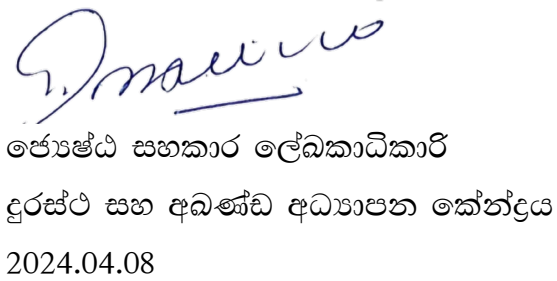 ජ්‍යෙෂ්ඨ සහකාර ලේඛකාධිකාරි
දුරස්ථ සහ අඛණ්ඩ අධ්‍යාපන කේන්ද්‍රය
2024.04.08